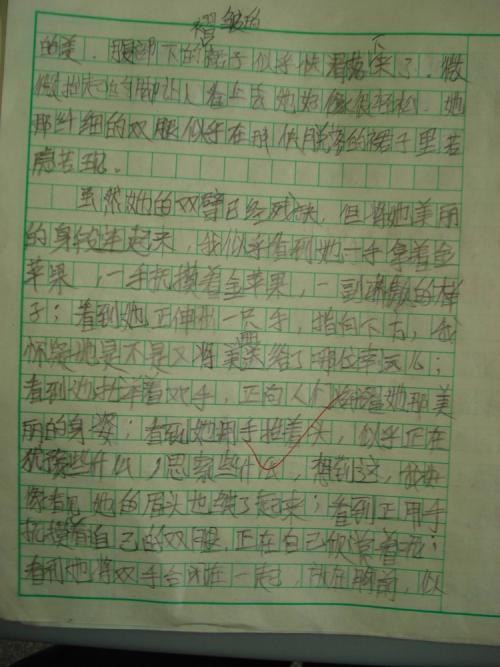 褶皱的
的美.腹部下的裙子似乎快要落下来了.微
微抬起的脚让人看上去她好像很轻松.她
那纤细的双腿似乎在那快脱落的裙子里若
隐若现。
虽然她的双臂已经残缺,但将她美丽
的身段连起来,我似乎看到她一手拿着金
苹果,一手抚摸着金苹果,一副的样
子;看到她正伸出一只手,指向下方,我
怀疑她是不是又将美送给了哪位幸运儿;
看到她托举着双手,正向人们她那美
丽的身姿;看到她用手抱着头,似乎正在
犹豫些什么,思索些什么,想到这,我好
像看见她的眉头也皱了起来;看到正用手
抚摸着自己的双腿,正在自己欣赏着;
看到她将双手合在一起,放在胸前,似